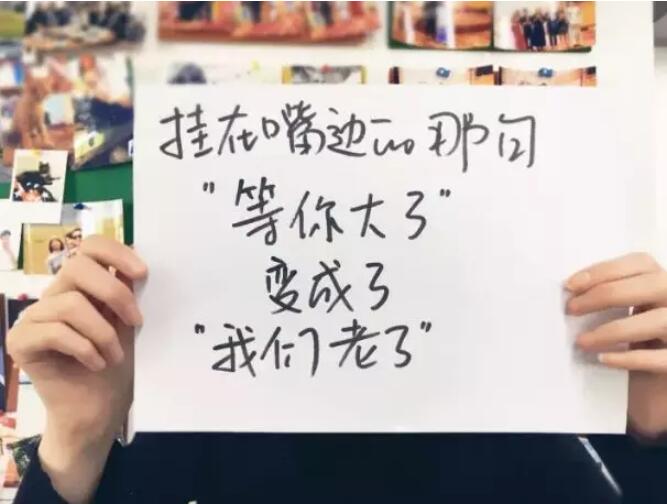 挂在嘴边的那句
"等你大了"
变成了
"我们老了"